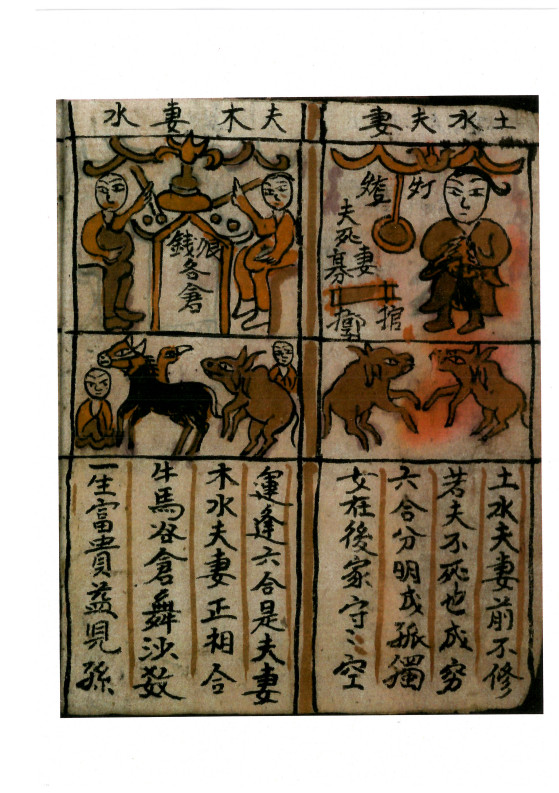 土水夫妻
灯
夫死
妻
墓
棺
土水夫妻前不修
若夫不死也成穷
六合分明成孤獨
女在後家守〻空
夫木妻水
錢各倉
運逢六合是夫妻
木水夫妻正相合
牛馬谷倉舞沙数
一生富貴益見孫